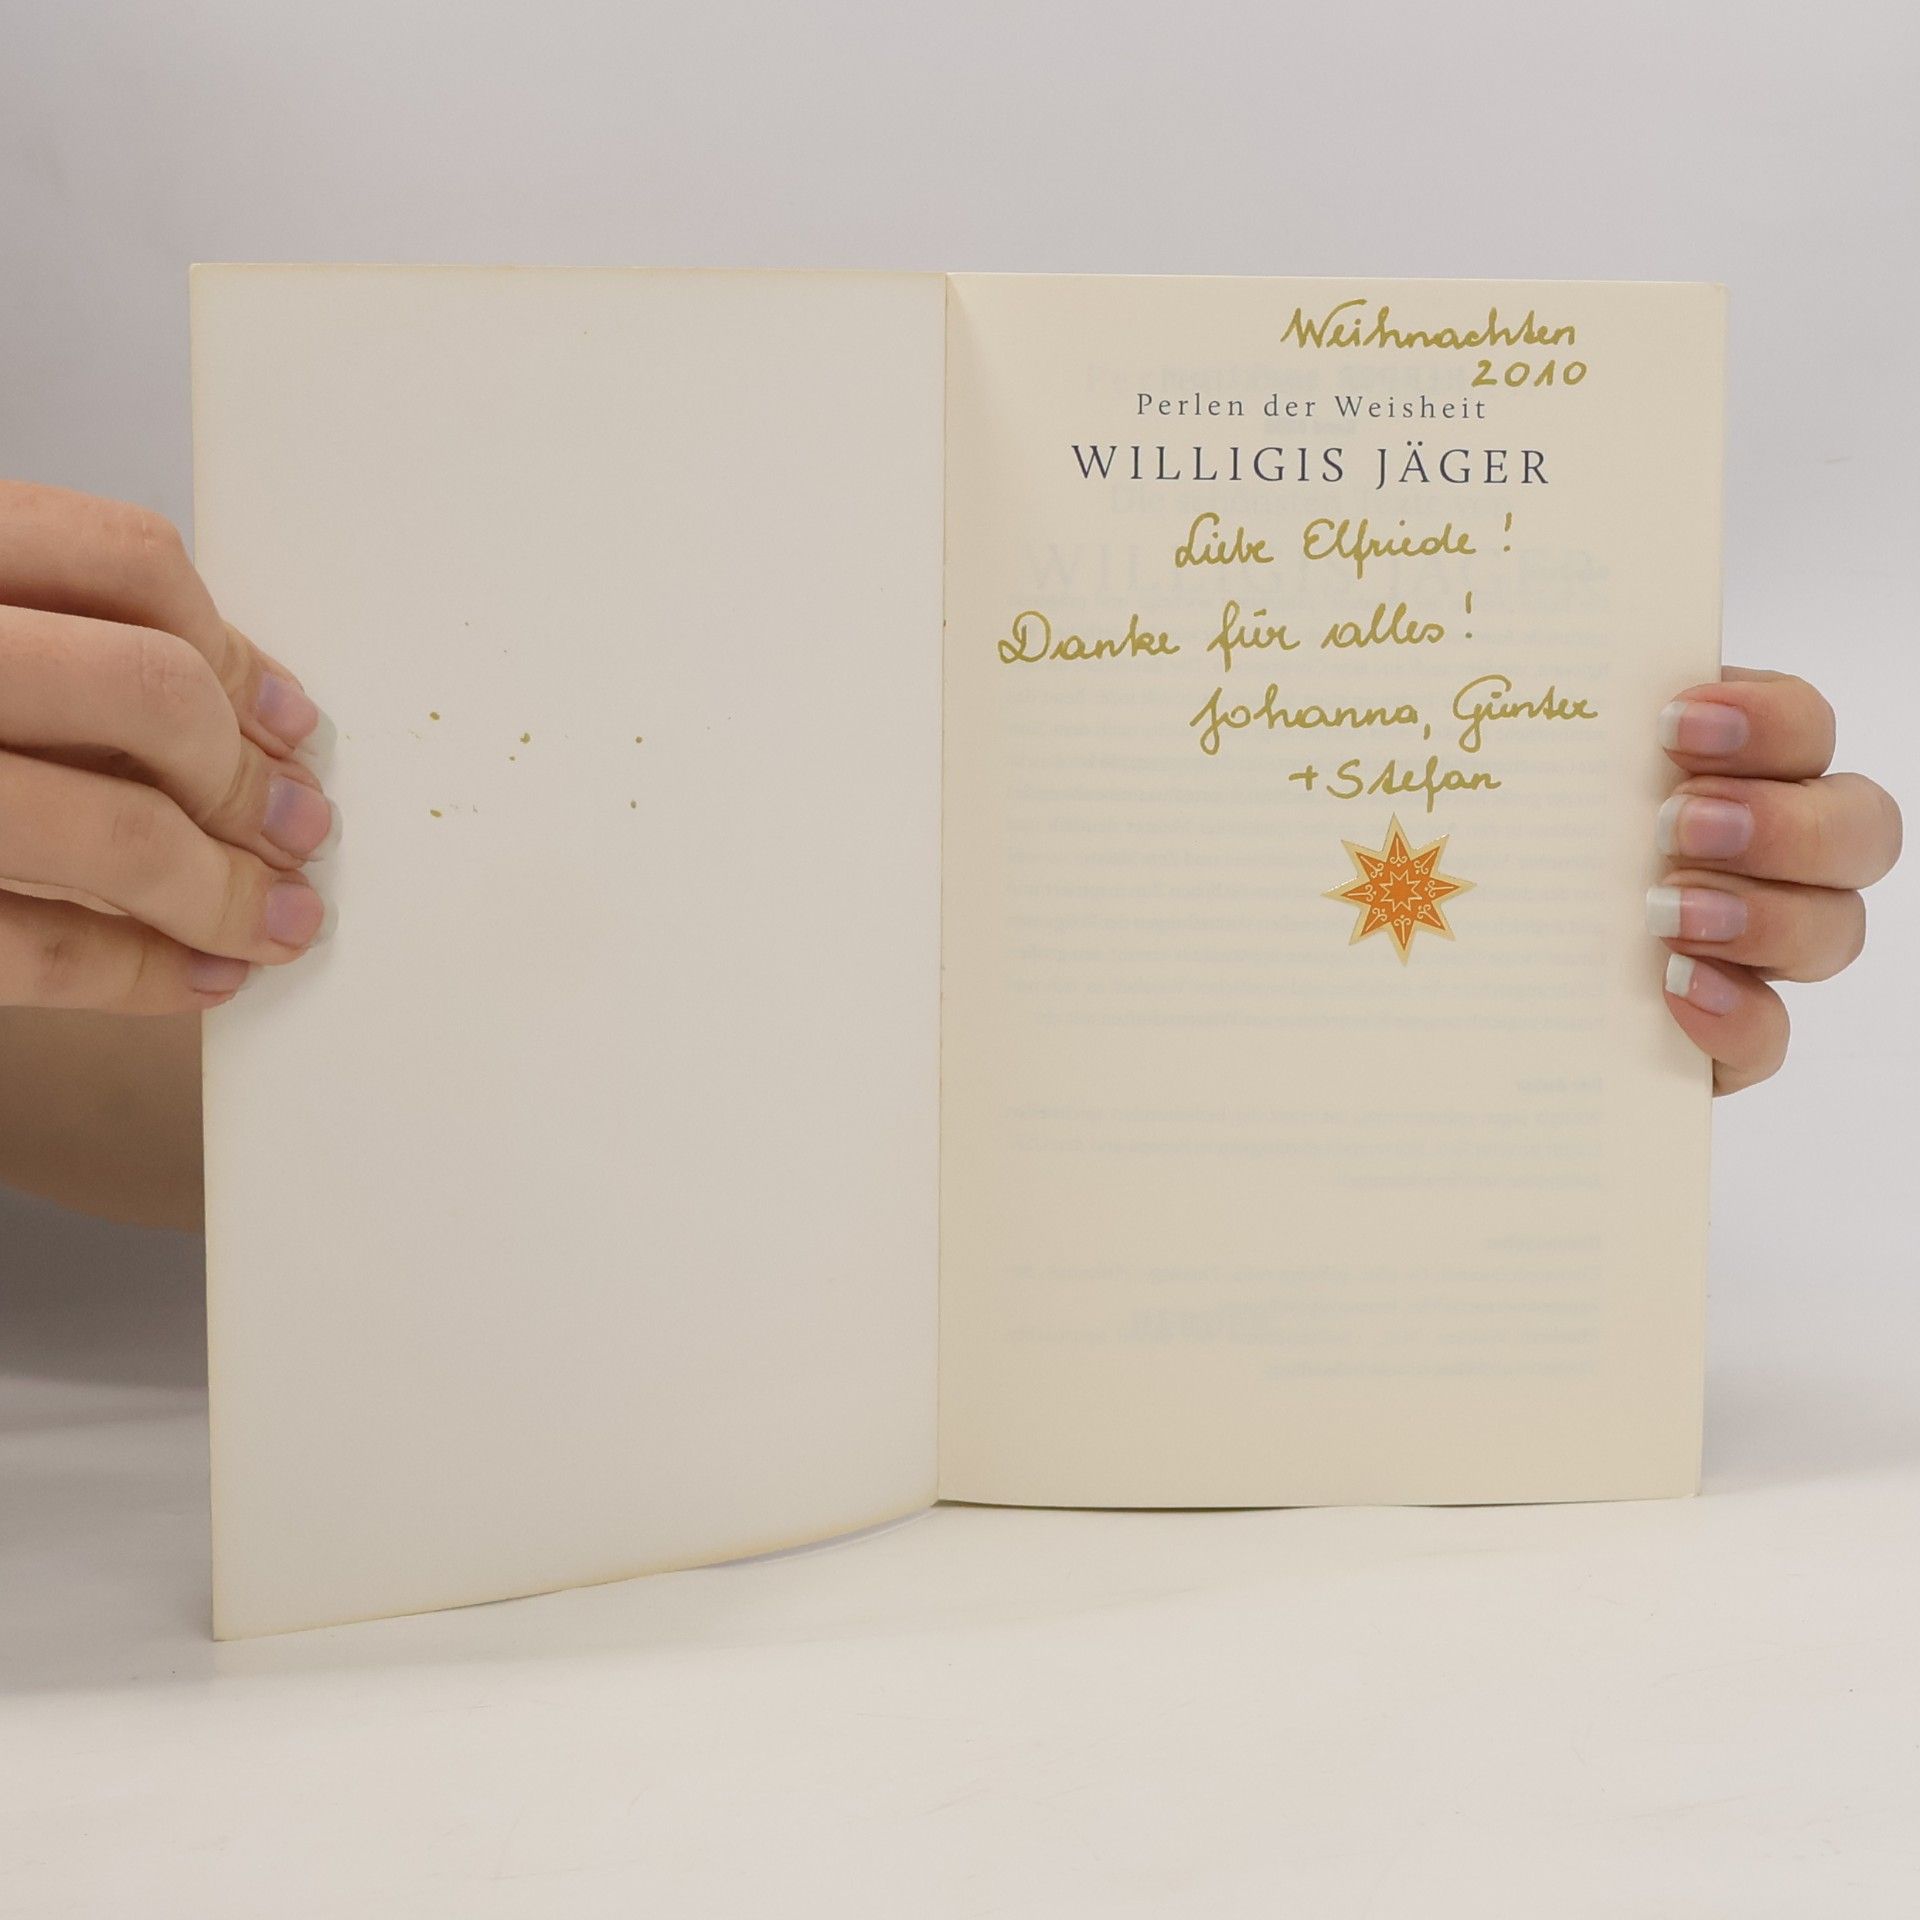 Weihnachten
2010
Perlen der Weisheit
WILLIGIS JÄGER
Liebe Elfriede!
Danke für alles!
Johanna, Günter
+ Stefan